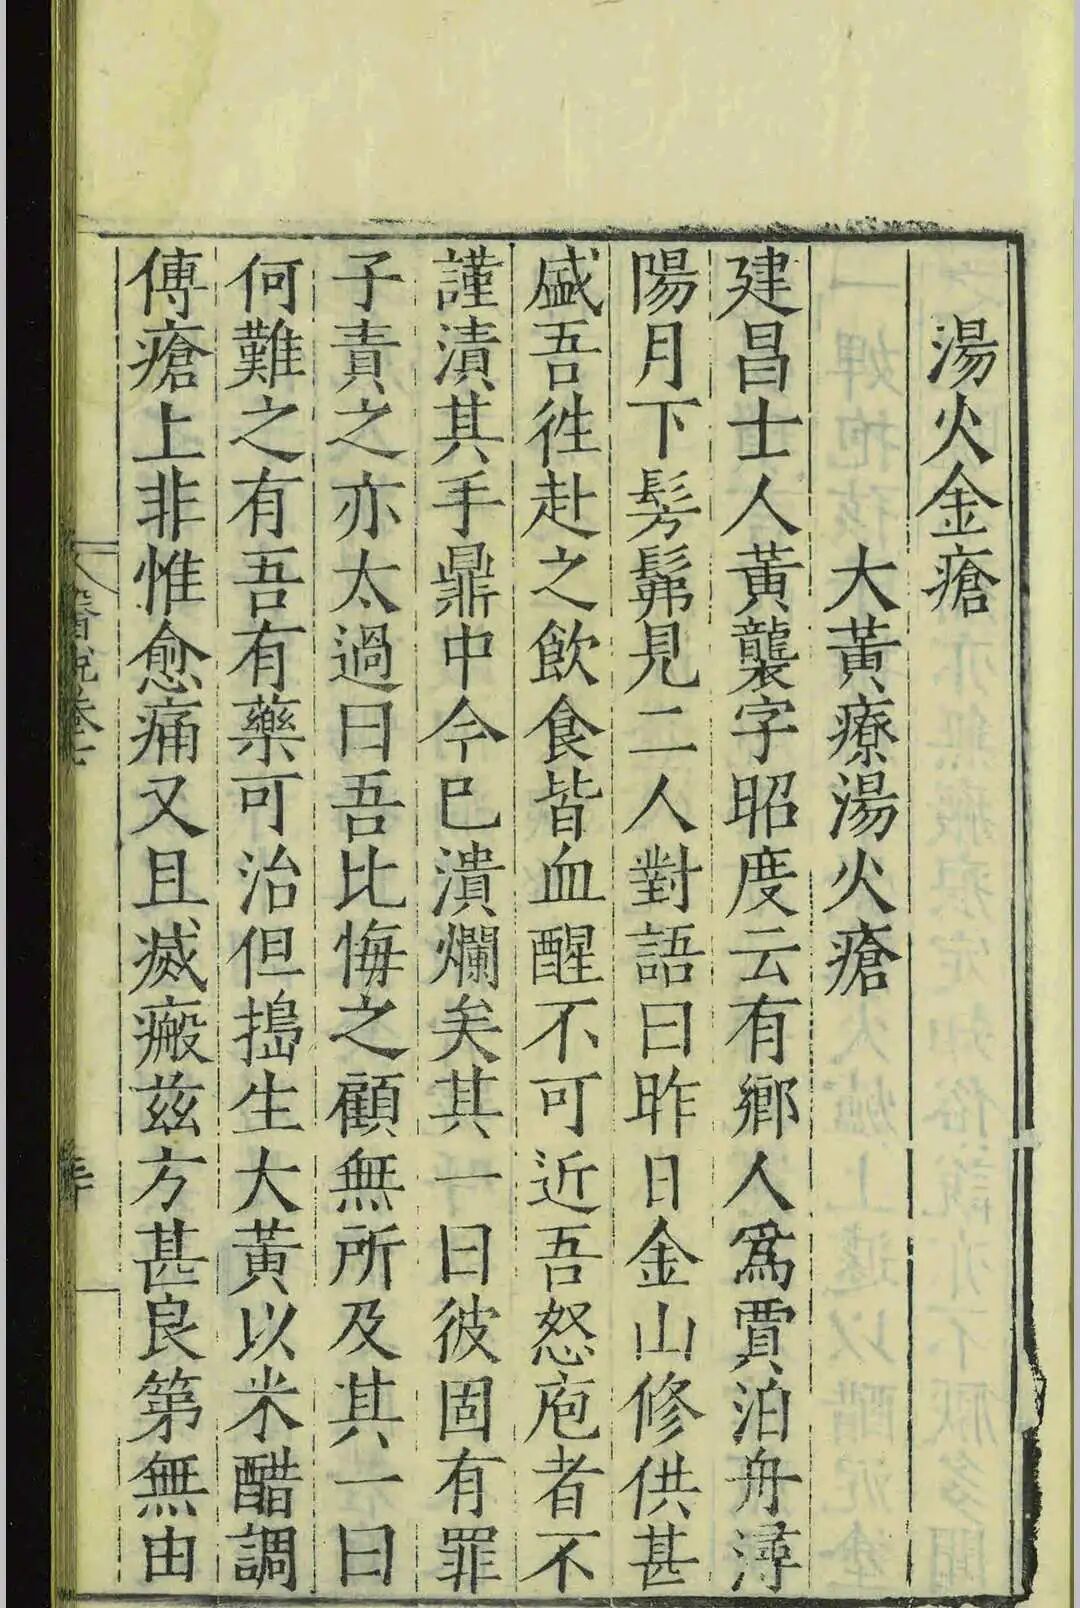 湯火金瘡
大黃療湯火瘡
建昌士人黃襲字昭度云有鄉人爲賈泊舟潯
陽月下髣髴見二人對語曰昨日金山修供甚
盛吾徃赴之飲食皆血醒不可近吾怒庖者不
謹漬其手鼎中今巳潰爛矣其一曰彼固有罪
子責之亦太過曰吾比悔之顧無所及其一曰
何難之有吾有藥可治但搗生大黃以米醋調
傅瘡上非惟愈痛又且滅瘢兹方甚良第無由
醫説卷七